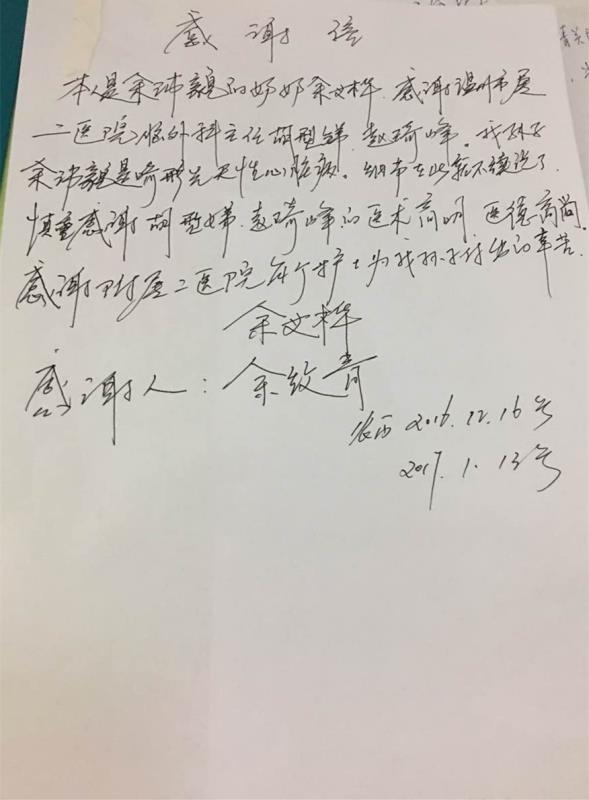 感谢信
本人是余沛毅的奶奶余文桦.感谢温州市属
二医院胸外科主任胡型锑.赵琦峰。我孙子
余沛毅是畸形先天性心脏病。细节在此就不续说了
慎重感谢胡型锑.赵琦峰的医术高明.医德高尚.
感谢附属二医院每个护士为我孙子付出的辛苦.
余文桦
感谢人:余纹青
农历2016.12.16号
2017.1.13号